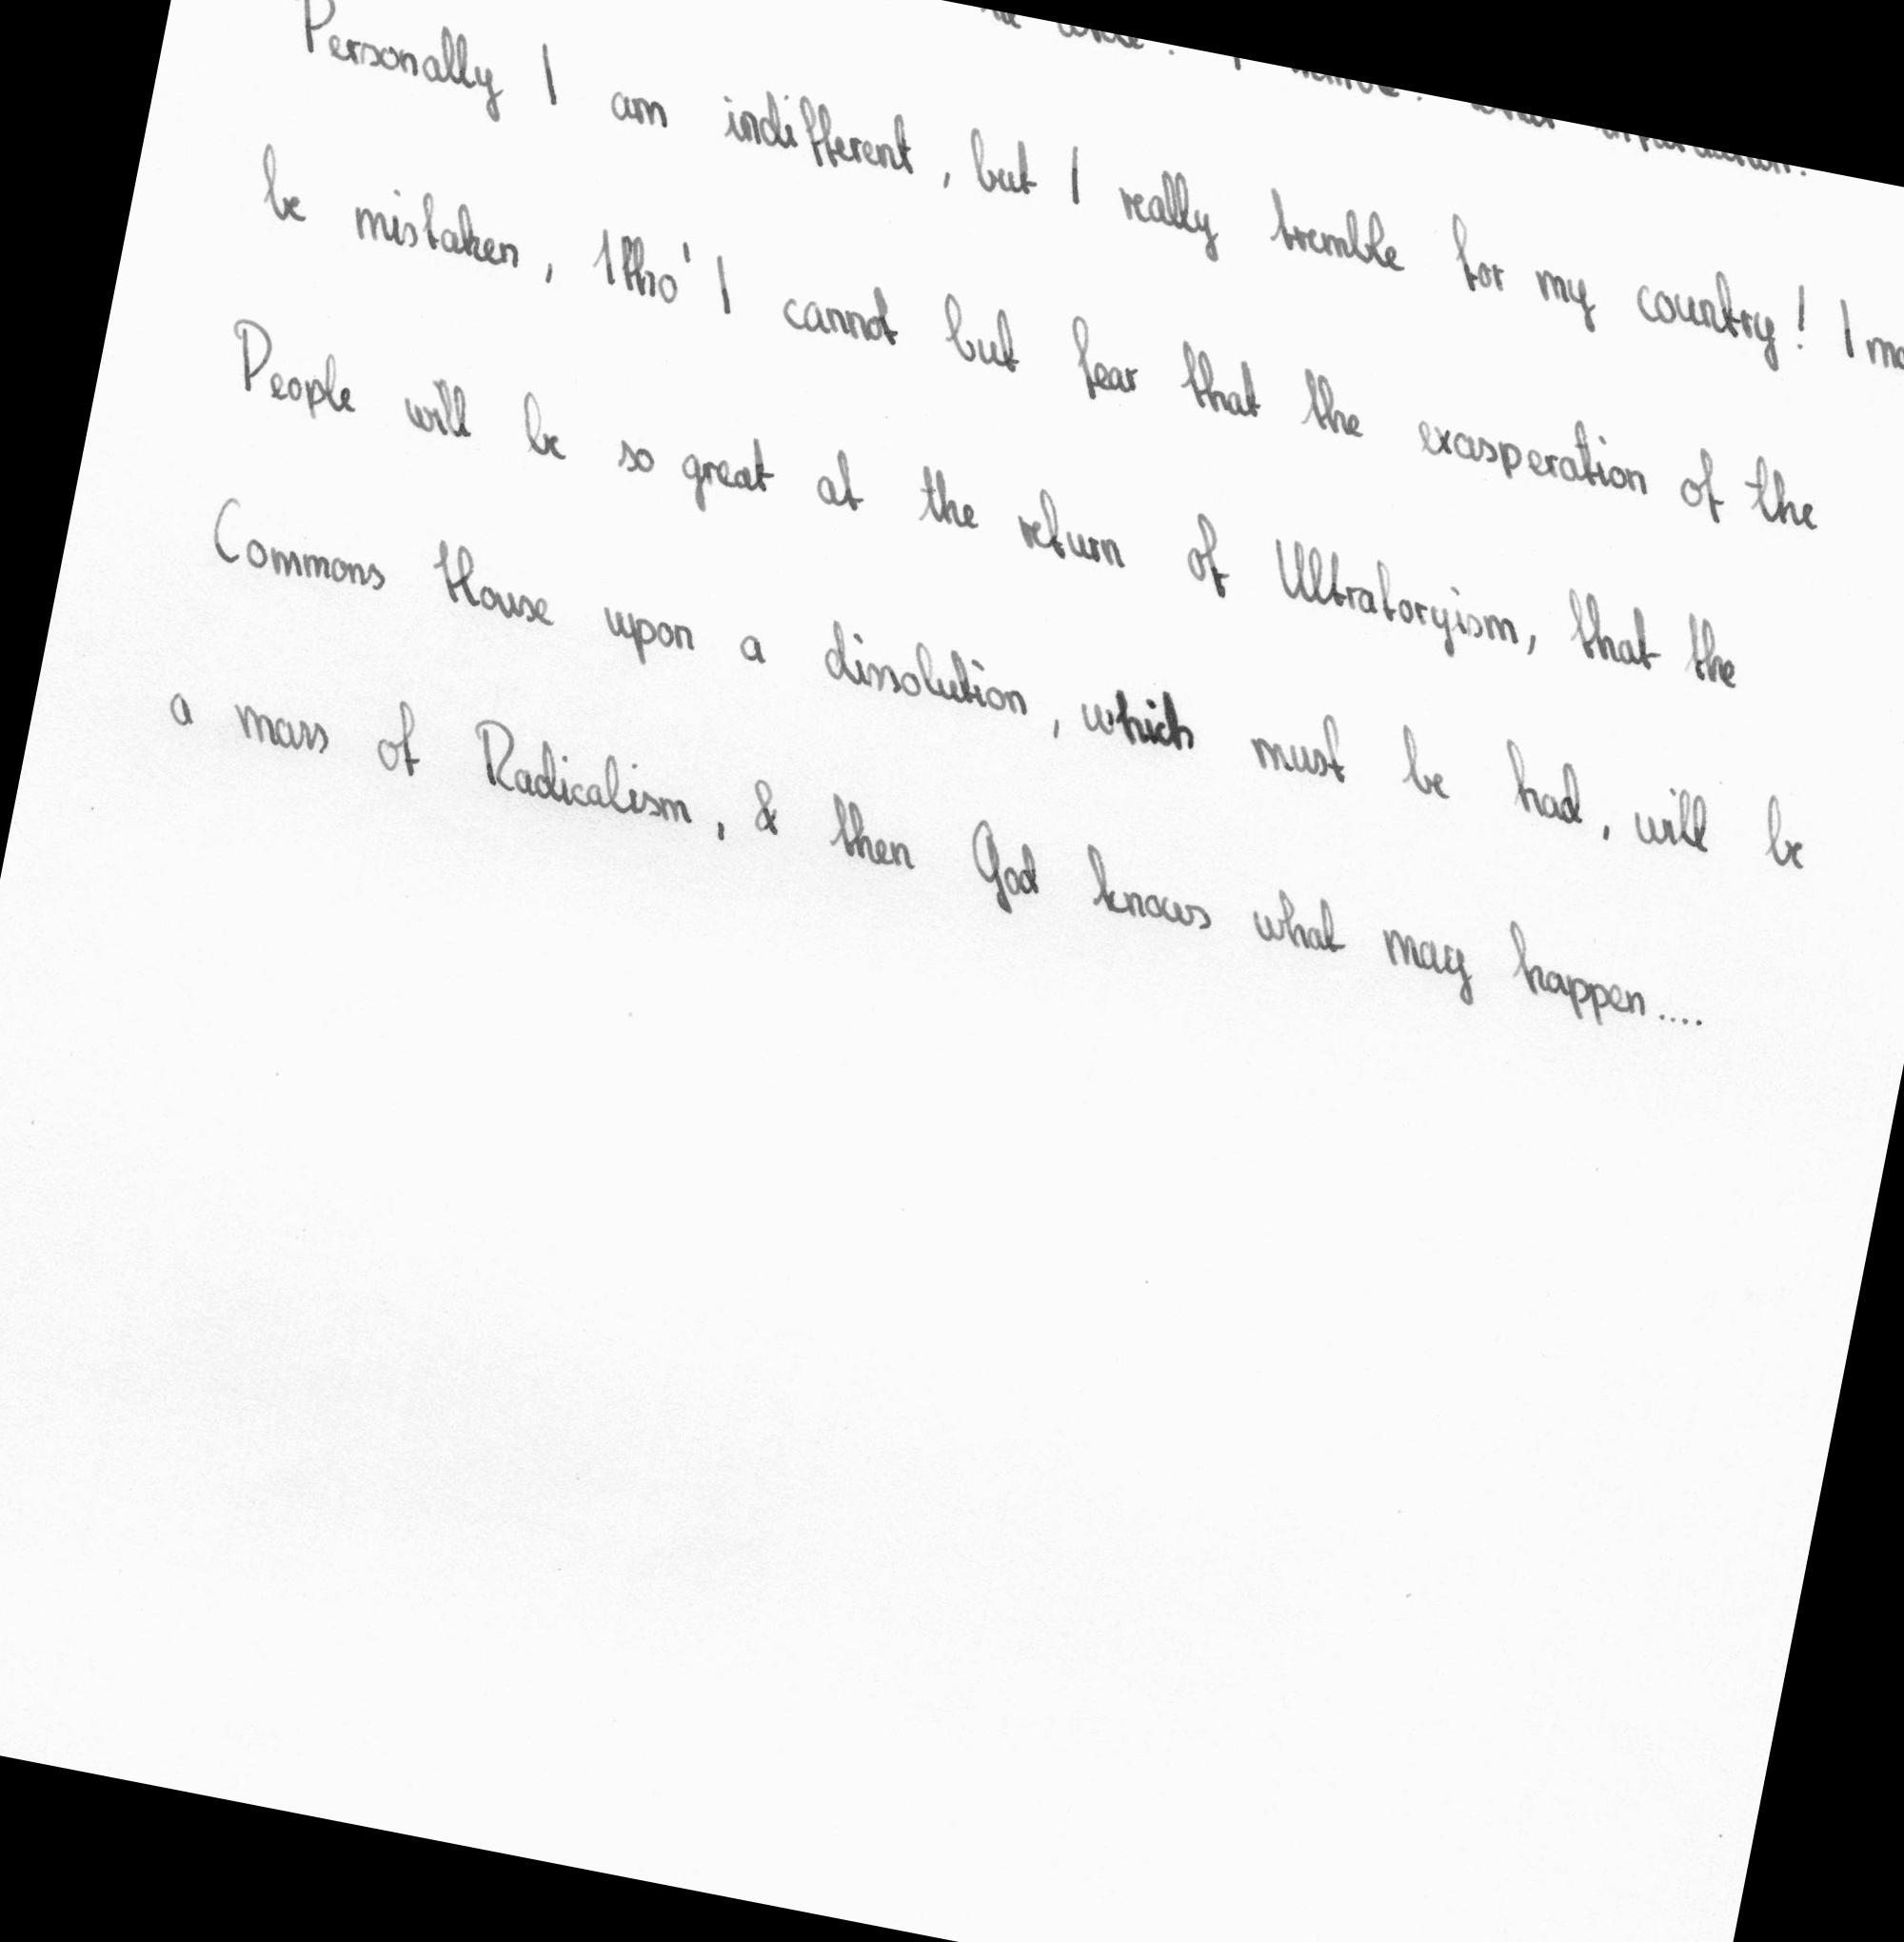 Personally I am indifferent, but I really tremble for my country! I
be mistaken, tho' I cannot but fear that the exasperation of the
People will be so great at the return of Ultratoryism, that the
Commons House upon a dissolution, which must be had, will be
a mass of Radicalism, & then God knows what may happen....